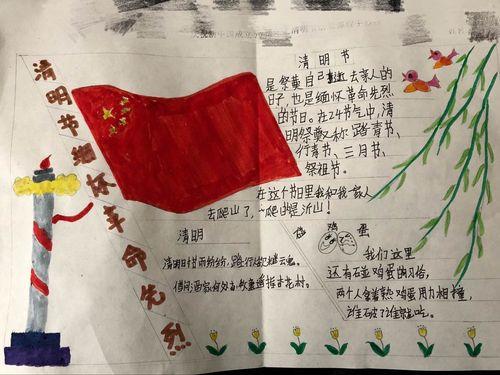 清明节缅怀革命先烈
清明节
是祭奠自己逝去亲人的
日子，也是缅怀革命先烈
的节日。在24节气中，清
明祭奠又称踏青节、
行青节、三月节、
祭祖节。
在这个节日里我和我家人
去爬山了，爬的是沂山！
碰鸡蛋
我们这里
还有碰鸡蛋的习俗，
两个人拿着熟鸡蛋用力相撞，
谁破了谁就吃。
清明
清明时节雨纷纷，路行人欲断魂。
借问酒家何处有，牧童遥指杏花村。